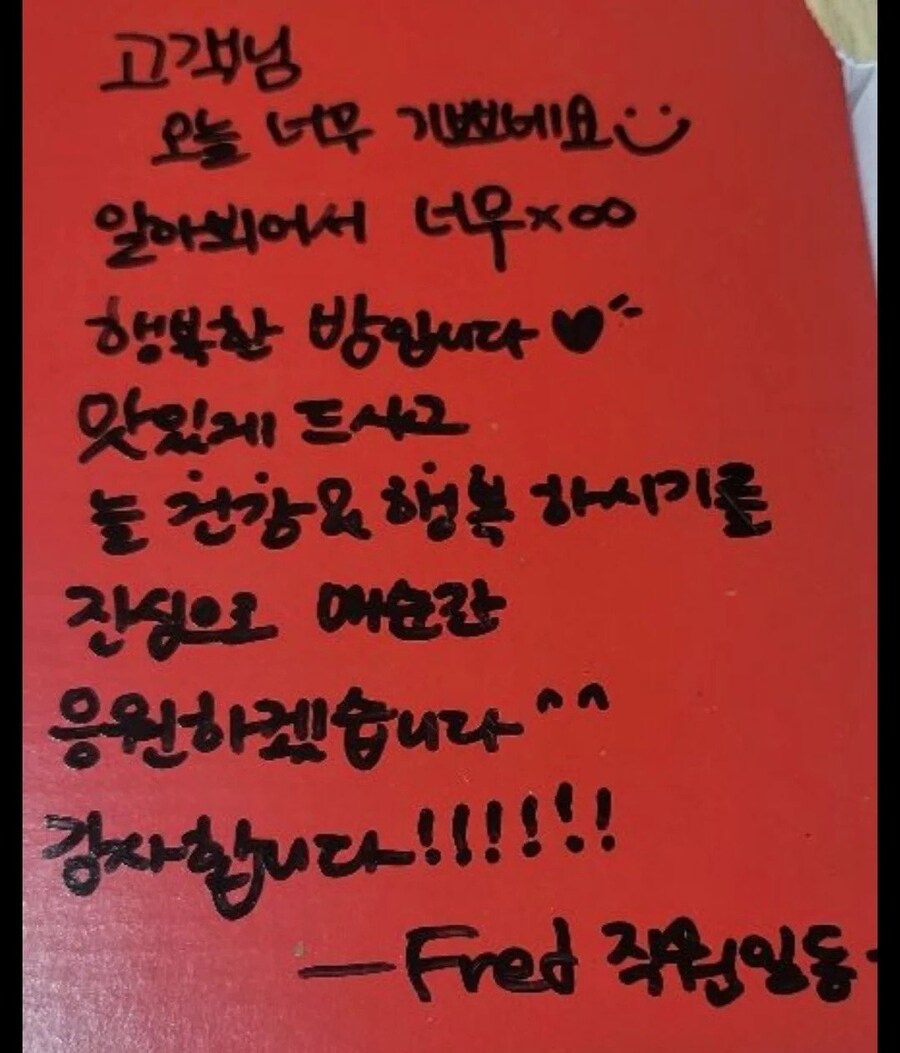 고객님
오늘 너무 기쁘네요
알아뵈어서 너무×∞
행복한 밤입니다♥
맛있게 드시고
늘 건강&행복 하시기를
진심으로
응원하겠습니다^^
감사합니다!!!!!!
—Fred 직원일동-